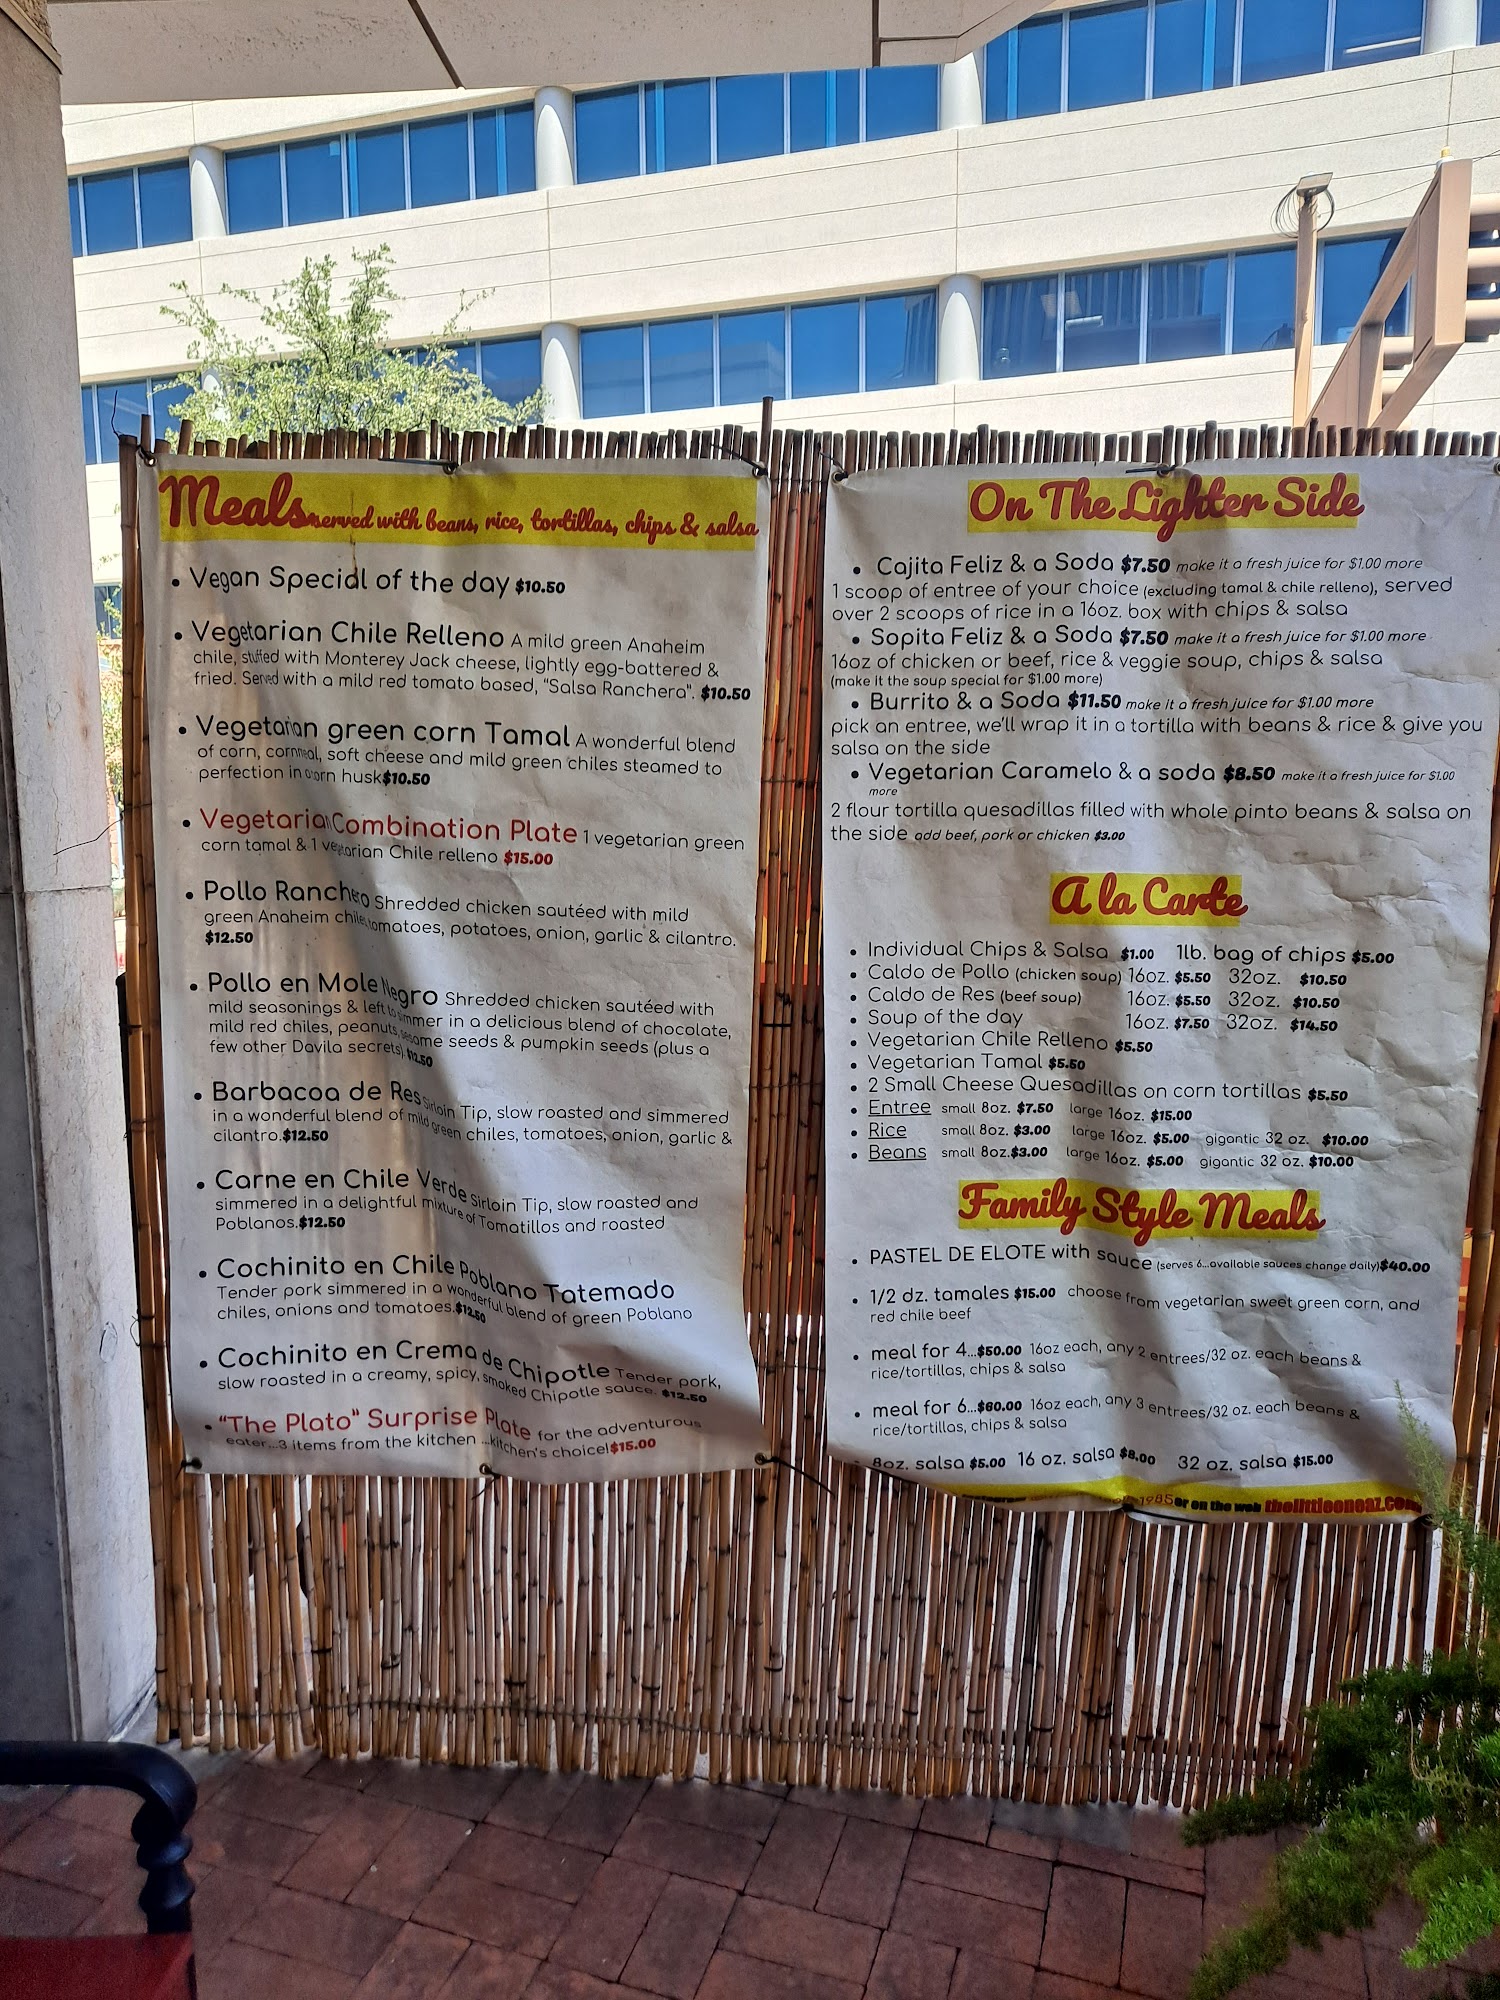 Meals served with beans, rice, tortillas, chips & salsa
• Vegan Special of the day $10.50
• Vegetarian Chile Relleno A mild green Anaheim
chile, stuffed with Monterey Jack cheese, lightly egg-battered &
fried. Served with a mild red tomato based, "Salsa Ranchera". $10.50
• Vegetarian green corn Tamal A wonderful blend
of corn, cornmeal, soft cheese and mild green chiles steamed to
perfection in a corn husk $10.50
• Vegetarian Combination Plate 1 vegetarian green
corn tamal & 1 vegetarian Chile relleno $15.00
• Pollo Ranchero Shredded chicken sautéed with mild
green Anaheim chile, tomatoes, potatoes, onion, garlic & cilantro.
$12.50
• Pollo en Mole Negro Shredded chicken sautéed with
mild seasonings & left to simmer in a delicious blend of chocolate,
mild red chiles, peanuts, sesame seeds & pumpkin seeds (plus a
few other Davila secrets). $12.50
• Barbacoa de Res Sirloin Tip, slow roasted and simmered
in a wonderful blend of mild green chiles, tomatoes, onion, garlic &
cilantro. $12.50
• Carne en Chile Verde Sirloin Tip, slow roasted and
simmered in a delightful mixture of Tomatillos and roasted
Poblanos. $12.50
• Cochinito en Chile Poblano Tatemado
Tender pork simmered in a wonderful blend of green Poblano
chiles, onions and tomatoes. $12.50
• Cochinito en Crema de Chipotle Tender pork,
slow roasted in a creamy, spicy, smoked Chipotle sauce. $12.50
• "The Plato" Surprise Plate for the adventurous
eater...3 items from the kitchen ...kitchen's choice! $15.00
On The Lighter Side
• Cajita Feliz & a Soda $7.50 make it a fresh juice for $1.00 more
1 scoop of entree of your choice (excluding tamal & chile relleno), served
over 2 scoops of rice in a 16oz. box with chips & salsa
• Sopita Feliz & a Soda $7.50 make it a fresh juice for $1.00 more
16oz of chicken or beef, rice & veggie soup, chips & salsa
(make it the soup special for $1.00 more)
• Burrito & a Soda $11.50 make it a fresh juice for $1.00 more
pick an entree, we'll wrap it in a tortilla with beans & rice & give you
salsa on the side
• Vegetarian Caramelo & a soda $8.50 make it a fresh juice for $1.00
more
2 flour tortilla quesadillas filled with whole pinto beans & salsa on
the side add beef, pork or chicken $3.00
A la Carte
• Individual Chips & Salsa $1.00 1lb. bag of chips $5.00
• Caldo de Pollo (chicken soup) 16oz. $5.50 32oz. $10.50
• Caldo de Res (beef soup) 16oz. $5.50 32oz. $10.50
• Soup of the day 16oz. $7.50 32oz. $14.50
• Vegetarian Chile Relleno $5.50
• Vegetarian Tamal $5.50
• 2 Small Cheese Quesadillas on corn tortillas $5.50
• Entree small 8oz. $7.50 large 16oz. $15.00
• Rice small 8oz. $3.00 large 16oz. $5.00 gigantic 32 oz. $10.00
• Beans small 8oz. $3.00 large 16oz. $5.00 gigantic 32 oz. $10.00
Family Style Meals
• PASTEL DE ELOTE with sauce (serves 6...available sauces change daily) $40.00
• 1/2 dz. tamales $15.00 choose from vegetarian sweet green corn, and
red chile beef
• meal for 4...$50.00 16oz each, any 2 entrees/32 oz. each beans &
rice/tortillas, chips & salsa
• meal for 6...$60.00 16oz each, any 3 entrees/32 oz. each beans &
rice/tortillas, chips & salsa
• 8oz. salsa $5.00 16 oz. salsa $8.00 32 oz. salsa $15.00
1985 or on the web thelittleoneaz.com